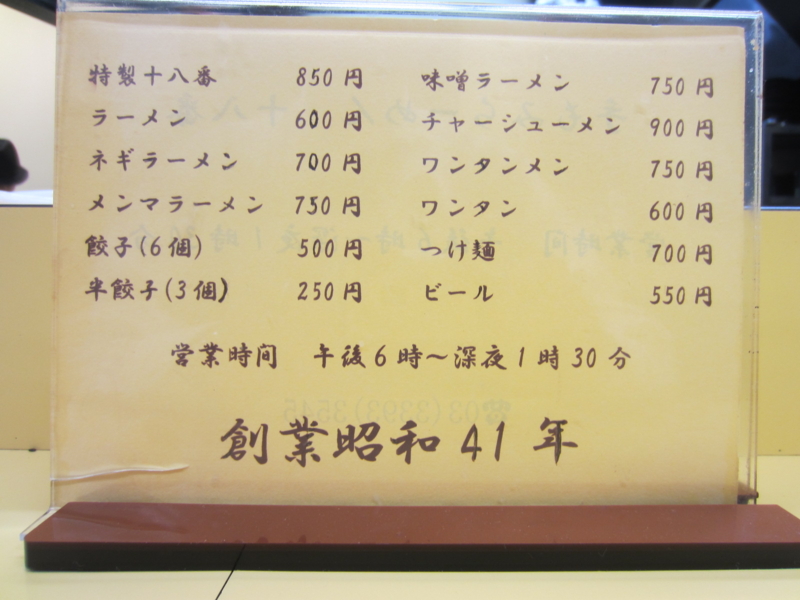 特製十八番 850円
ラーメン 600円
ネギラーメン 700円
メンマラーメン 750円
餃子(6個) 500円
半餃子(3個) 250円
味噌ラーメン 750円
チャーシューメン 900円
ワンタンメン 750円
ワンタン 600円
つけ麺 700円
ビール 550円
営業時間 午後6時〜深夜1時30分
創業昭和41年
☎03(3393)3545